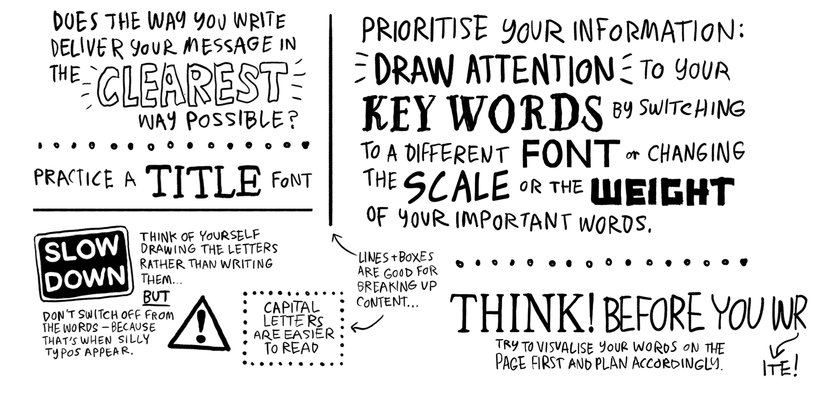 DOES THE WAY YOU WRITE
DELIVER YOUR MESSAGE IN
THE CLEAREST
WAY POSSIBLE?
PRACTICE A TITLE FONT
SLOW
DOWN
THINK OF YOURSELF
DRAWING THE LETTERS
RATHER THAN WRITING
THEM...
BUT
DON'T SWITCH OFF FROM
THE WORDS – BECAUSE
THAT'S WHEN SILLY
TYPOS APPEAR.
!
CAPITAL
LETTERS
ARE EASIER
TO READ
LINES + BOXES
ARE GOOD FOR
BREAKING UP
CONTENT...
PRIORITISE YOUR INFORMATION:
DRAW ATTENTION TO YOUR
KEY WORDS BY SWITCHING
TO A DIFFERENT FONT or CHANGING
THE SCALE OR THE WEIGHT
OF YOUR IMPORTANT WORDS.
THINK! BEFORE YOU WR
ITE!
TRY TO VISUALISE YOUR WORDS ON THE
PAGE FIRST AND PLAN ACCORDINGLY.